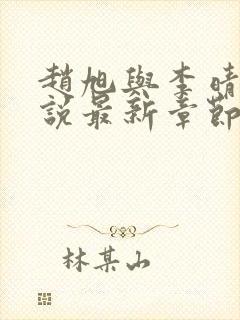 趙旭與李晴
說最新章節
林某山